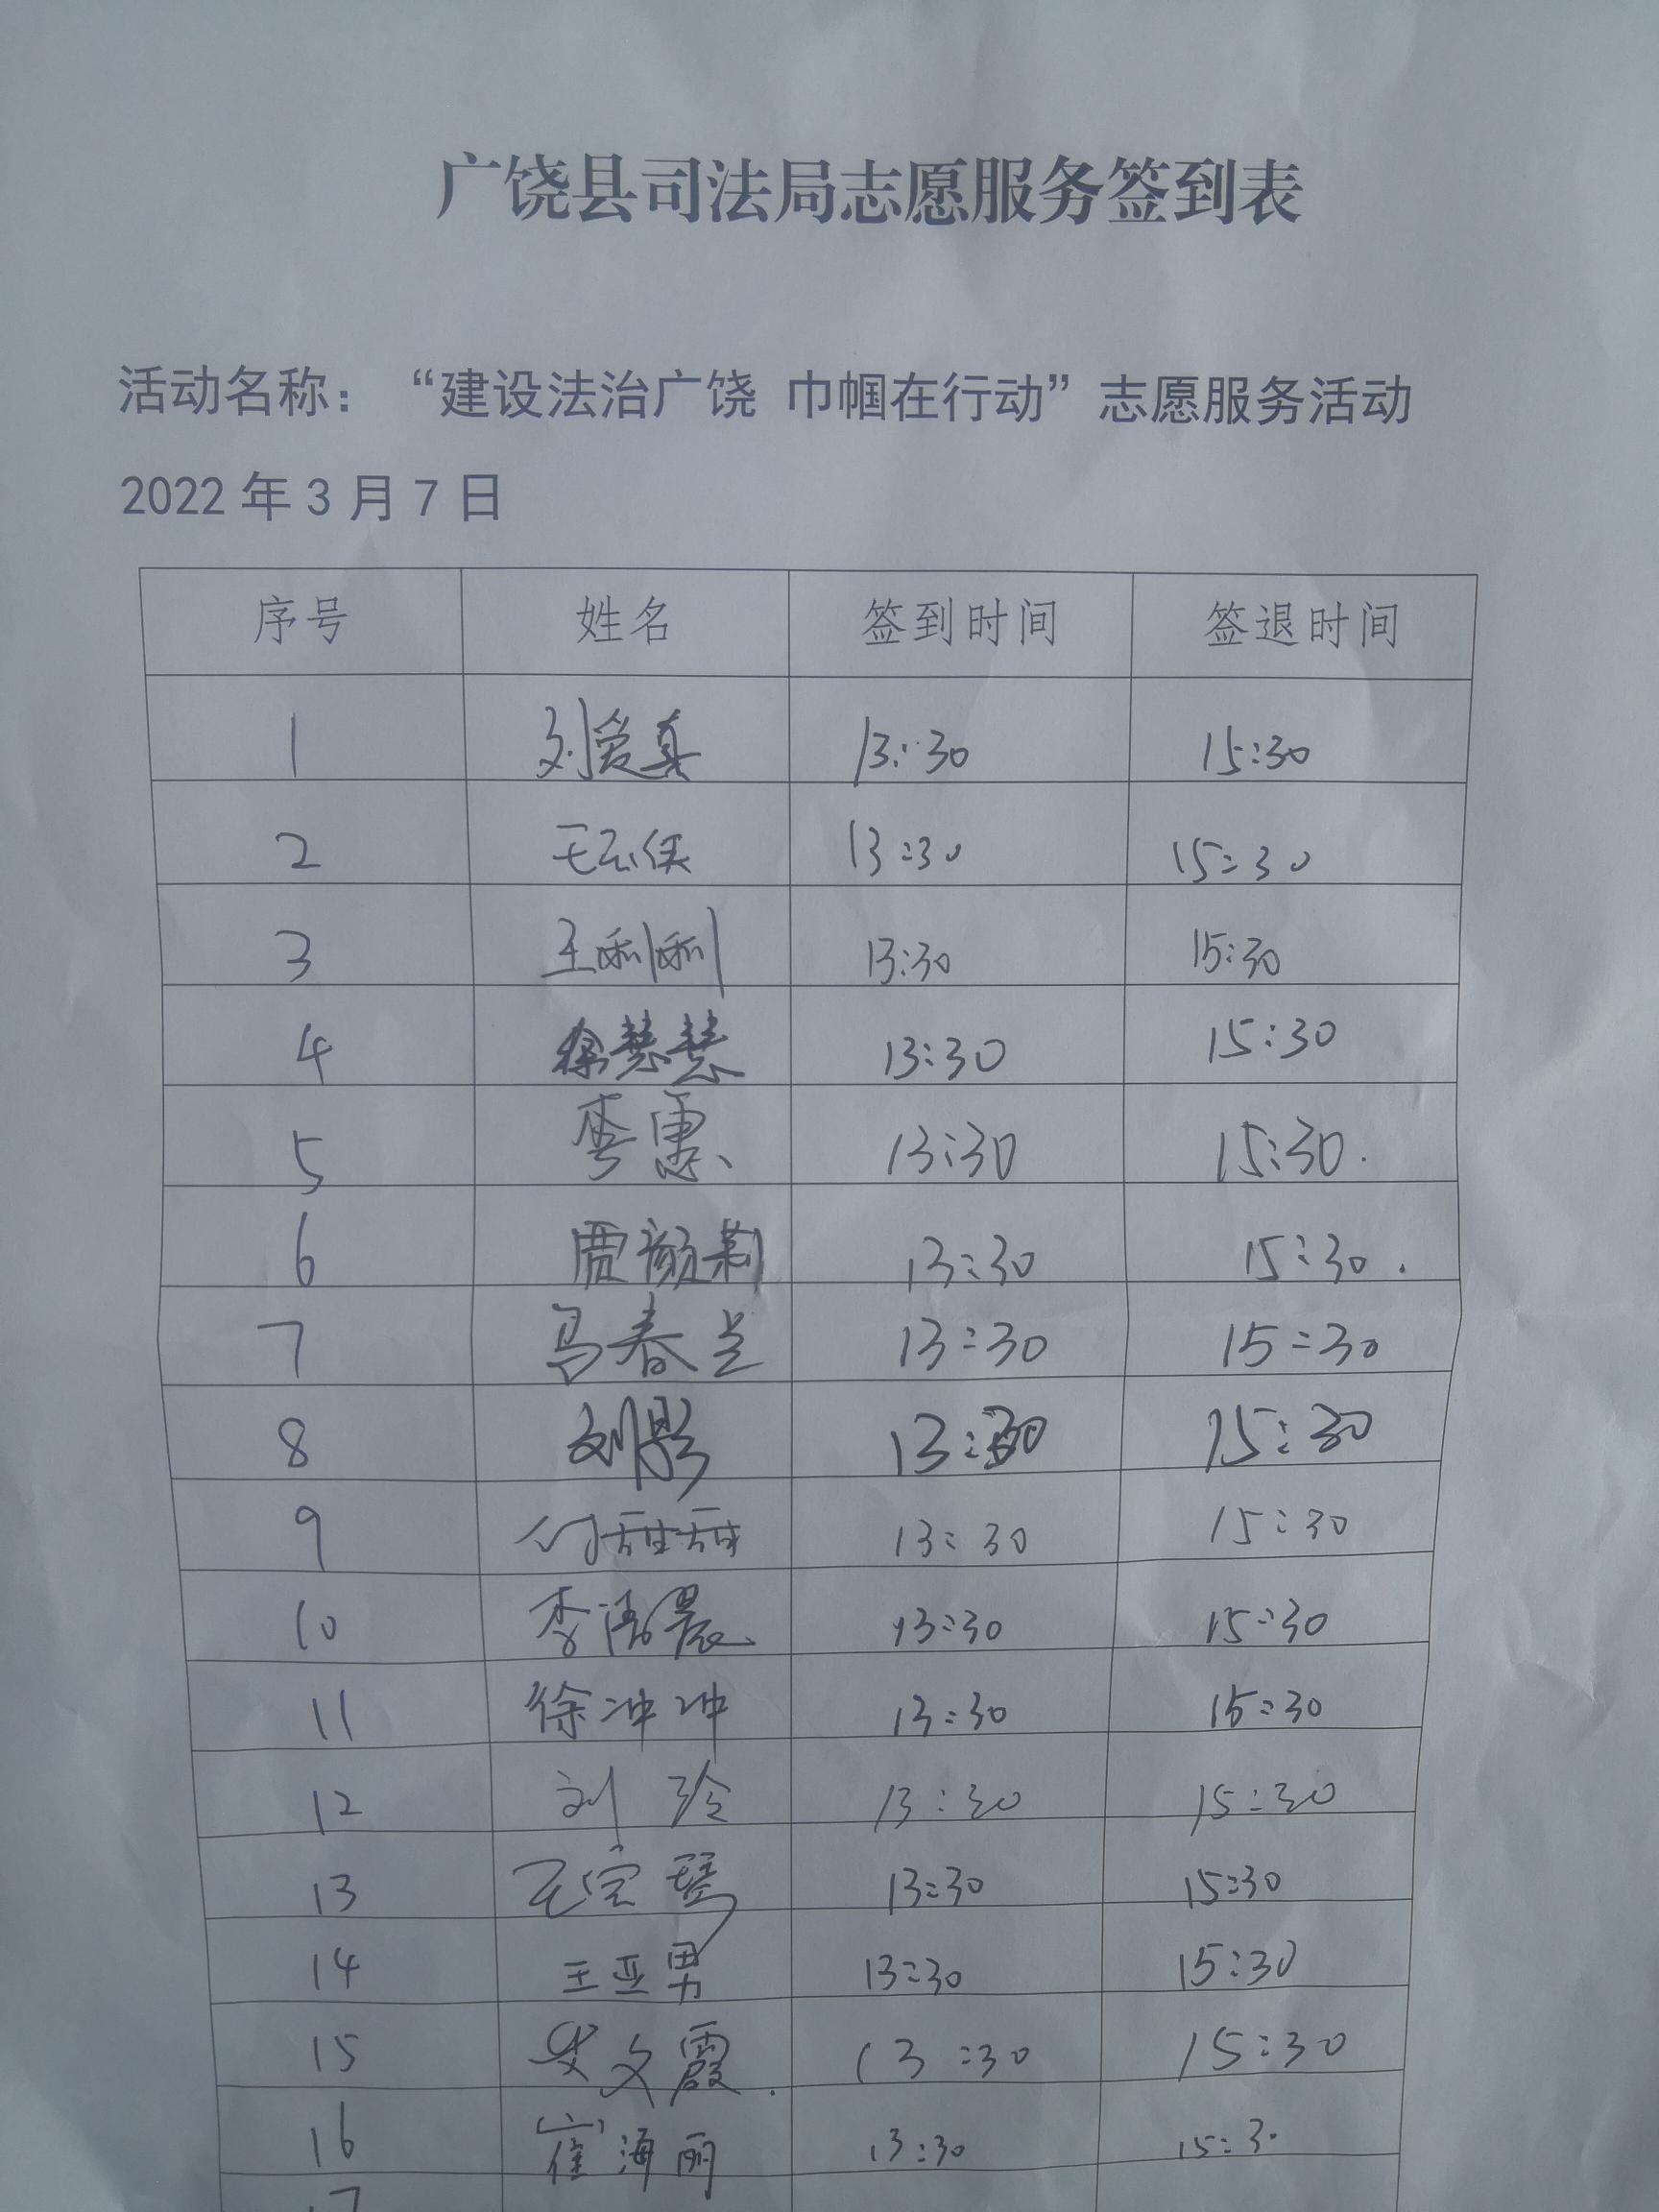 广饶县司法局志愿服务签到表
活动名称：“建设法治广饶 巾帼在行动”志愿服务活动
2022年3月7日
序号 姓名 签到时间 签退时间
1 刘爱真 13:30 15:30
2 王云侠 13:30 15:30
3 王利利 13:30 15:30
4 徐慧慧 13:30 15:30
5 李惠 13:30 15:30.
6 贾颜莉 13:30 15:30.
7 马春兰 13:30 15:30
8 刘影 13:30 15:30
9 付甜甜 13:30 15:30
10 李 晨 13:30 15:30
11 徐冲冲 13:30 15:30
12 刘玲 13:30 15:30
13 王宝琴 13:30 15:30
14 王亚男 13:30 15:30
15 文霞. 13:30 15:30
16 崔海丽 13:30 15:30
17